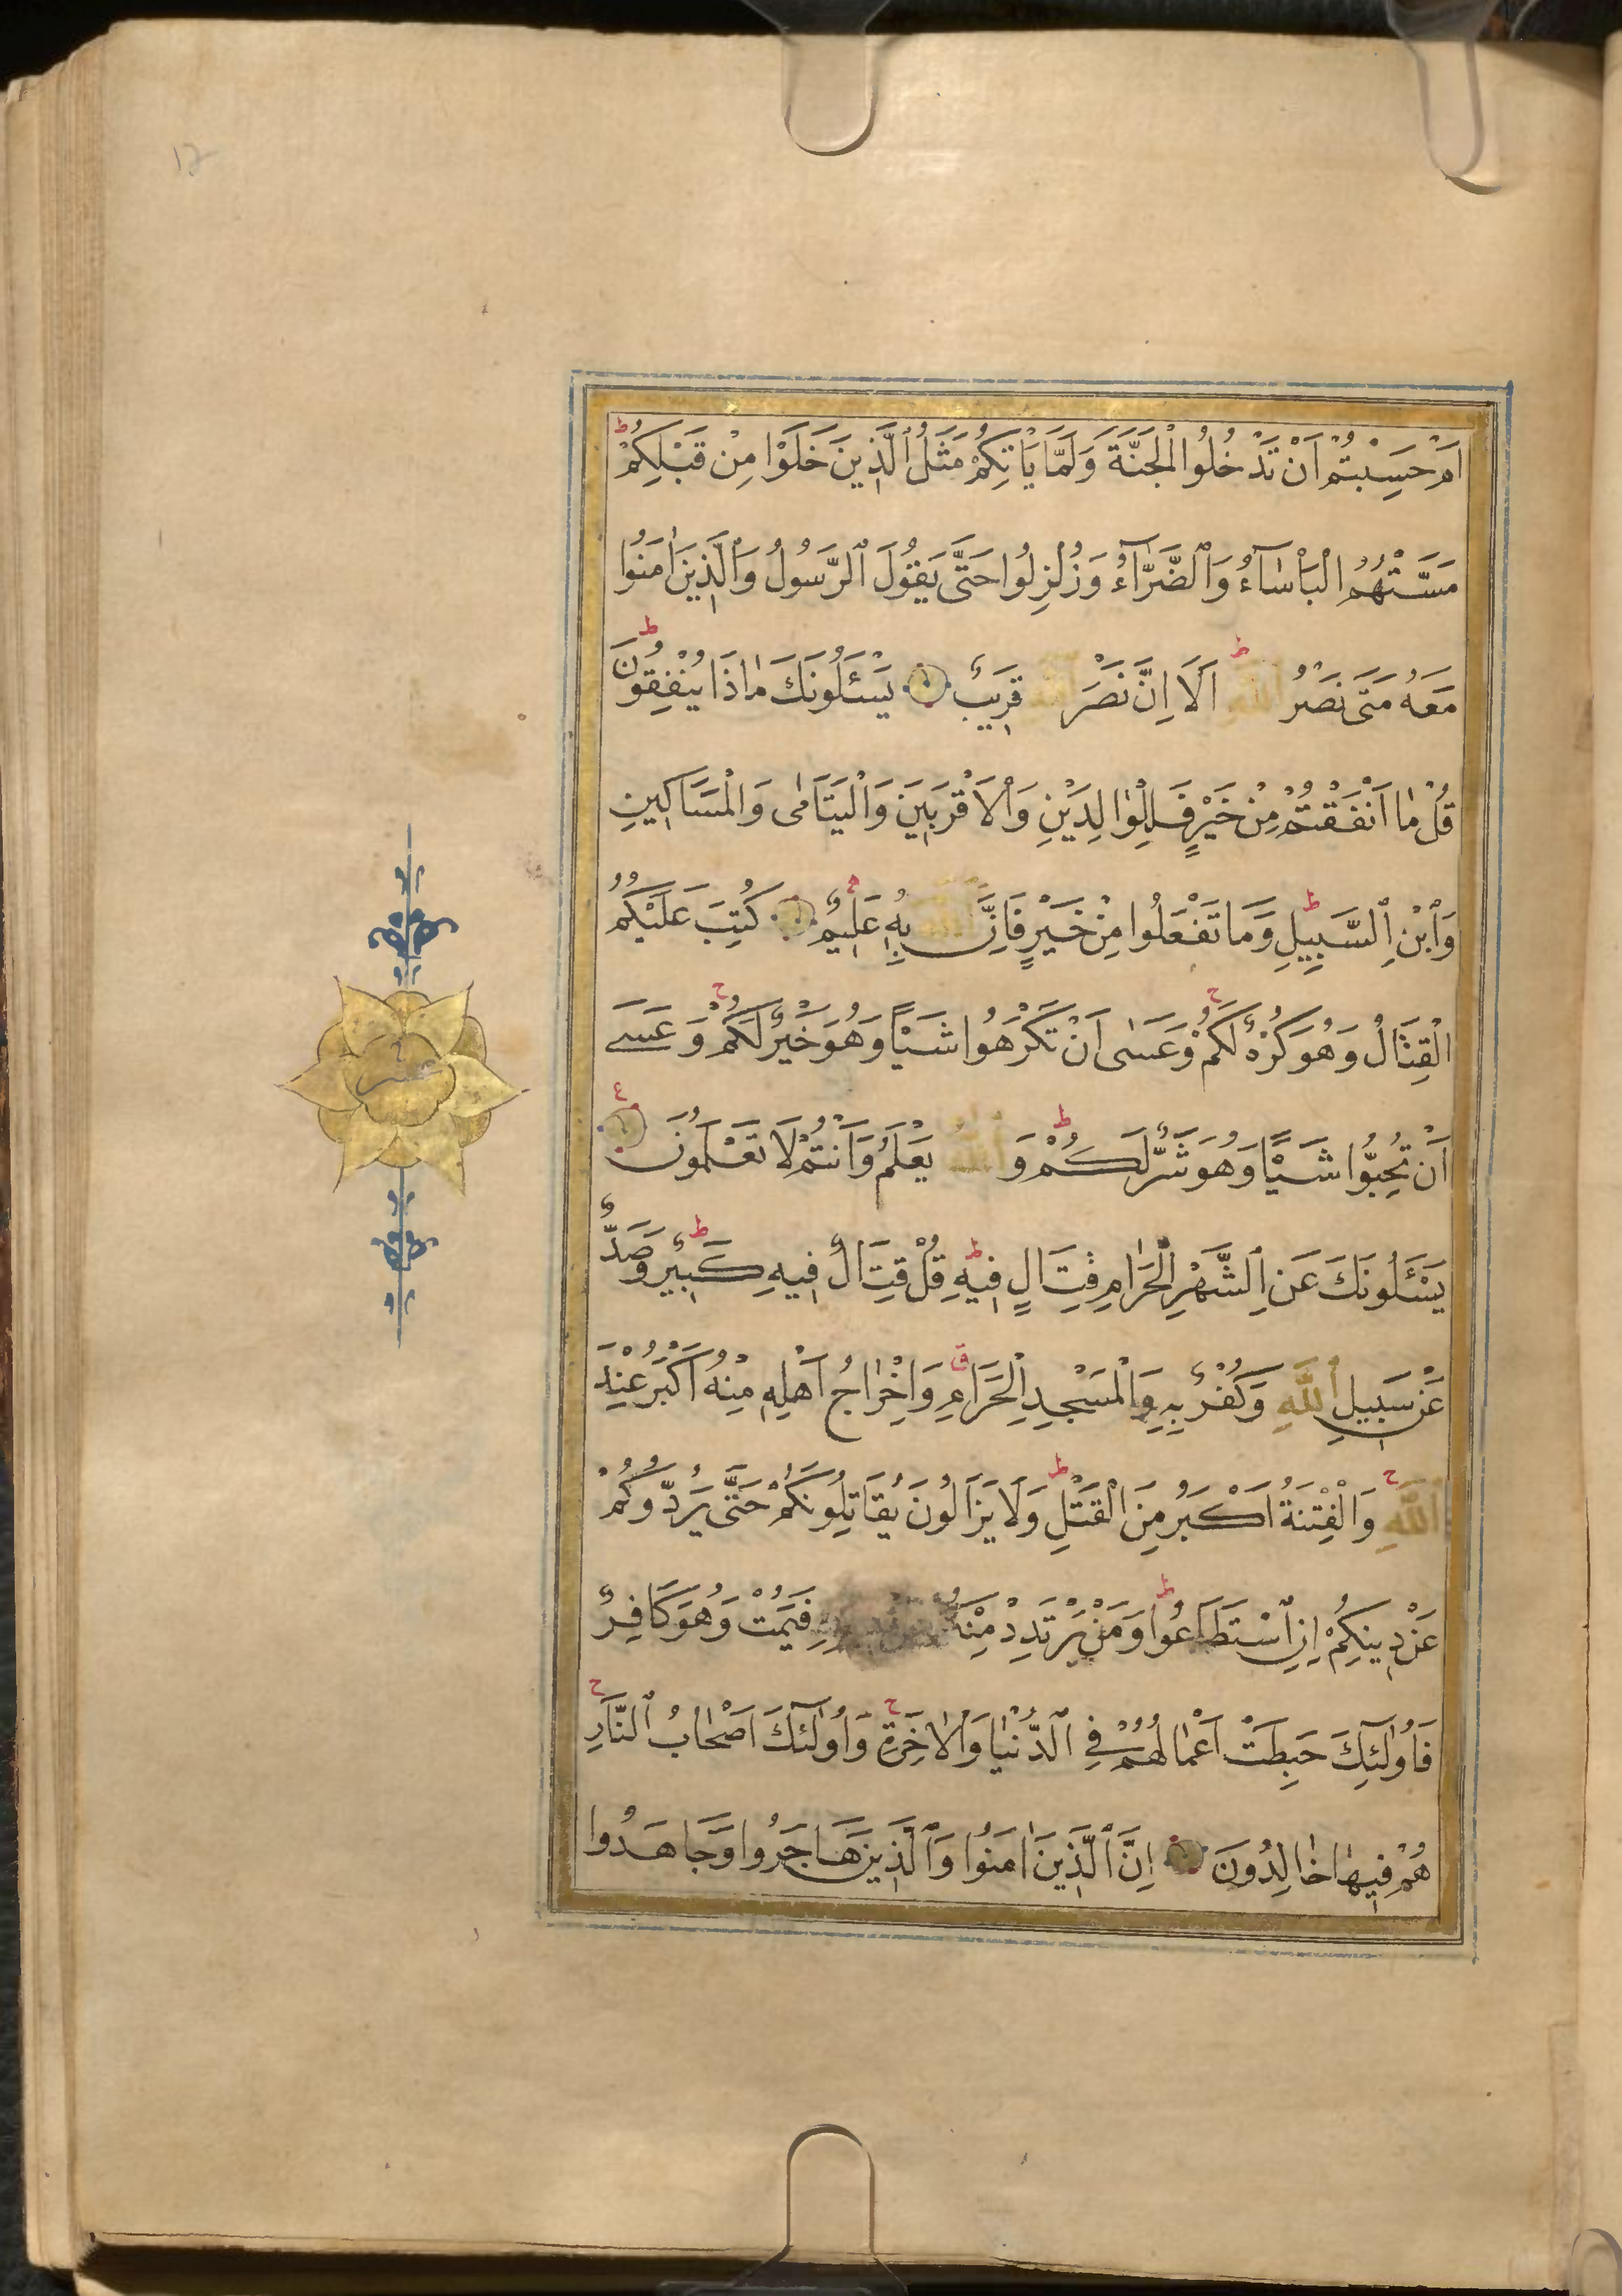 اَمْ حَسِبْتُمْ اَنْ تَدْخُلُوا الْجَنَّةَ وَلَمَّا يَاْتِكُمْ مَثَلُ الَّذِينَ خَلَوْا مِنْ قَبْلِكُمْ ط
مَسَّتْهُمُ الْبَاْسَآءُ وَالضَّرَّآءُ وَزُلْزِلُوا حَتَّى يَقُولَ الرَّسُولُ وَالَّذِينَ اٰمَنُوا
مَعَهُ مَتَى نَصْرُ اللّٰهِ ط اَلَا اِنَّ نَصْرَ اللّٰهِ قَرِيبٌ يَسْـَٔلُونَكَ مَاذَا يُنْفِقُونَ ط
قُلْ مَا اَنْفَقْتُمْ مِنْ خَيْرٍ فَلِلْوَالِدَيْنِ وَالْاَقْرَبِينَ وَالْيَتَامٰى وَالْمَسَاكِينِ
وَابْنِ السَّبِيلِ ط وَمَا تَفْعَلُوا مِنْ خَيْرٍ فَاِنَّ اللّٰهَ بِهٖ عَلِيمٌ كُتِبَ عَلَيْكُمُ
الْقِتَالُ وَهُوَ كُرْهٌ لَكُمْ ج وَعَسٰى اَنْ تَكْرَهُوا شَيْـًٔا وَهُوَ خَيْرٌ لَكُمْ ج وَعَسٰى
اَنْ تُحِبُّوا شَيْـًٔا وَهُوَ شَرٌّ لَكُمْ ط وَاللّٰهُ يَعْلَمُ وَاَنْتُمْ لَا تَعْلَمُونَ ع
يَسْـَٔلُونَكَ عَنِ الشَّهْرِ الْحَرَامِ قِتَالٍ فِيهِ ط قُلْ قِتَالٌ فِيهِ كَبِيرٌ ط وَصَدٌّ
عَنْ سَبِيلِ اللّٰهِ وَكُفْرٌ بِهٖ وَالْمَسْجِدِ الْحَرَامِ ق وَاِخْرَاجُ اَهْلِهٖ مِنْهُ اَكْبَرُ عِنْدَ
اللّٰهِ ج وَالْفِتْنَةُ اَكْبَرُ مِنَ الْقَتْلِ ط وَلَا يَزَالُونَ يُقَاتِلُونَكُمْ حَتَّى يَرُدُّوكُمْ
عَنْ دِينِكُمْ اِنِ اسْتَطَاعُوا ط وَمَنْ يَرْتَدِدْ فَيَمُتْ وَهُوَ كَافِرٌ
فَاُولٰٓئِكَ حَبِطَتْ اَعْمَالُهُمْ فِي الدُّنْيَا وَالْاٰخِرَةِ ج وَاُولٰٓئِكَ اَصْحَابُ النَّارِ ج
هُمْ فِيهَا خَالِدُونَ اِنَّ الَّذِينَ اٰمَنُوا وَالَّذِينَ هَاجَرُوا وَجَاهَدُوا